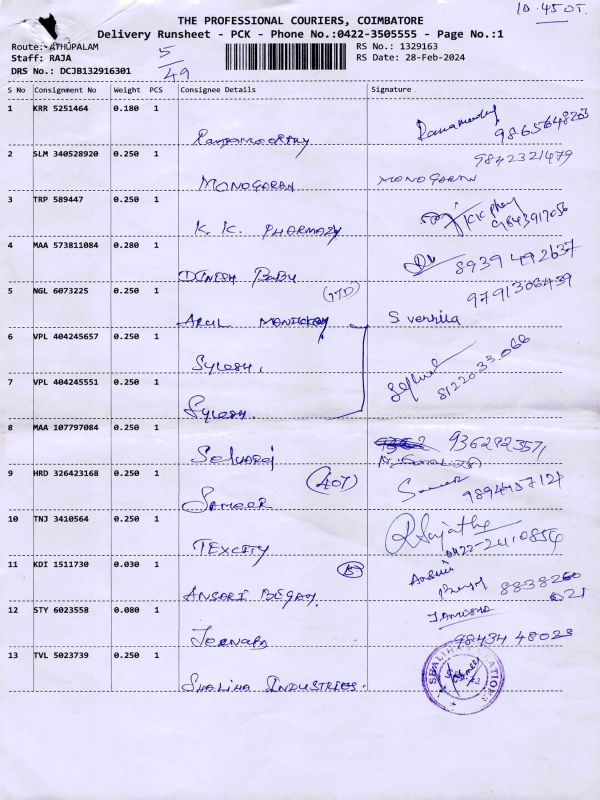 10.45 OT.
THE PROFESSIONAL COURIERS, COIMBATORE
Delivery Runsheet - PCK - Phone No.:0422-3505555 - Page No.:1
Route: ATHUPALAM
Staff: RAJA
DRS No.: DCJB132916301
5/49
RS No.: 1329163
RS Date: 28-Feb-2024
S No Consignment No Weight PCS Consignee Details Signature
1 KRR 5251464 0.180 1 Ramamoorthy Ramamoorthy 9865648203
2 SLM 340528920 0.250 1 MONOGARAN MONOGARAN 9842321479
3 TRP 589447 0.250 1 K. K. PHARMAZY KK phay 9843917056
4 MAA 573811084 0.280 1 DINESH BABU 8939492637
5 NGL 6073225 0.250 1 ARUL MONICKAM (77D) S vennila 9791306439
6 VPL 404245657 0.250 1 Sylesh. 8122033066
7 VPL 404245551 0.250 1 Sylesh.
8 MAA 107797084 0.250 1 Selvaraj 9362923571
9 HRD 326423168 0.250 1 SAMEER (407) 9894157121
10 TNJ 3410564 0.250 1 TEXCITY R Sujatha 0422-2410854
11 KDI 1511730 0.030 1 ANSARI BEGAM.
12 STY 6023558 0.080 1 98434 48023
13 TVL 5023739 0.250 1 SHALIHA INDUSTRIES.